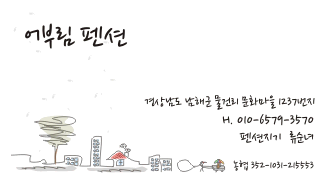 어부림 펜션
경상남도 남해군 물건리 문화마을 1237번지
H. 010-6579-3570
펜션지기 류순녀
농협 352-1031-215553